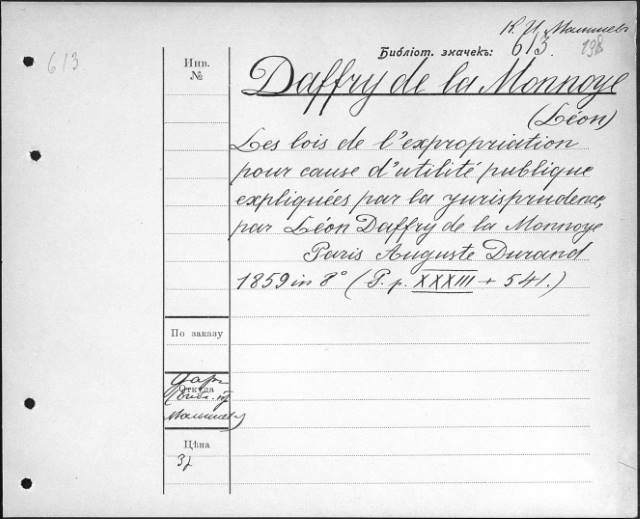 К. И. Малышев
613
Инв.
№
Библіот. значекъ: 613. 198
Daffry de la Monnoye
(Léon)
Les lois de l'expropriation
pour cause d'utilité publique
expliquées par la jurisprudence,
par Léon Daffry de la Monnoye
Paris Auguste Durand
1859 in 8° (P. p. XXXIII + 541.)
По заказу
Даръ
Откуда
Малышев
Цѣна
3р